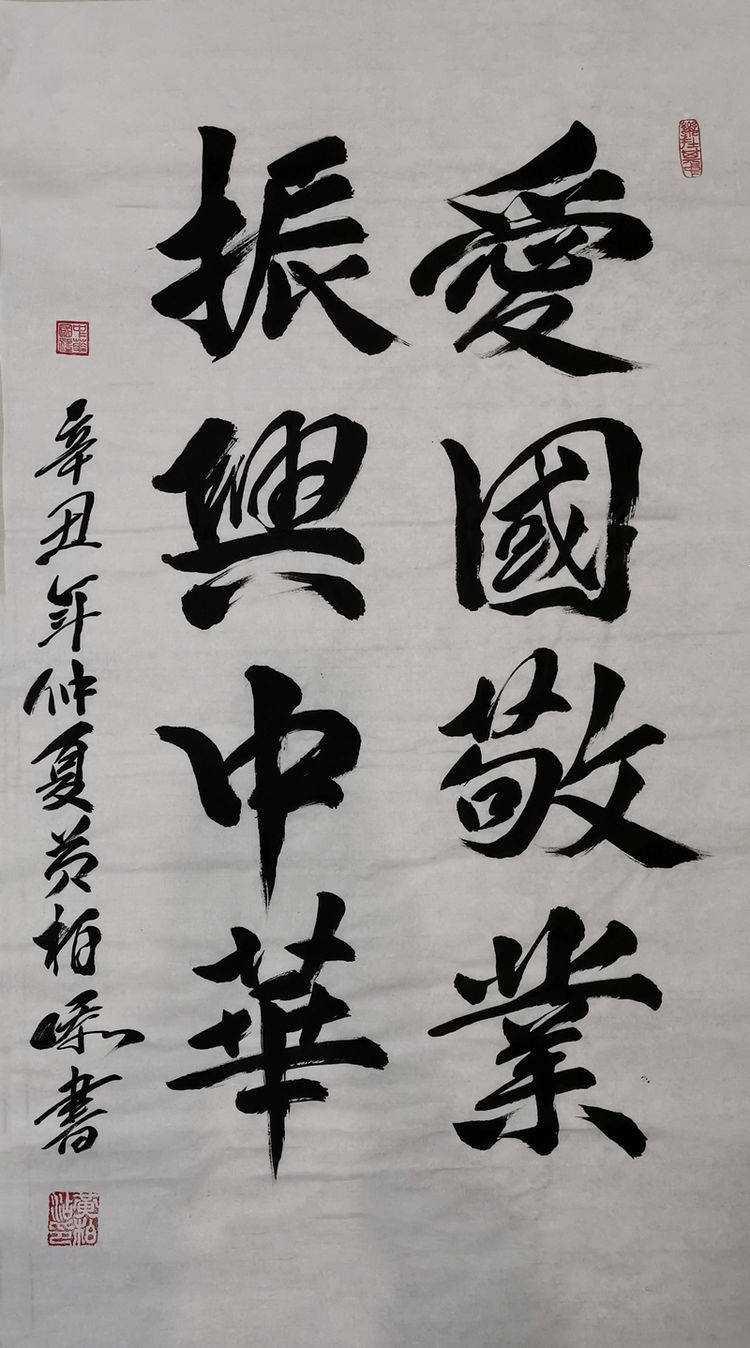 愛國敬業
振興中華
辛丑年仲夏黃柏添書